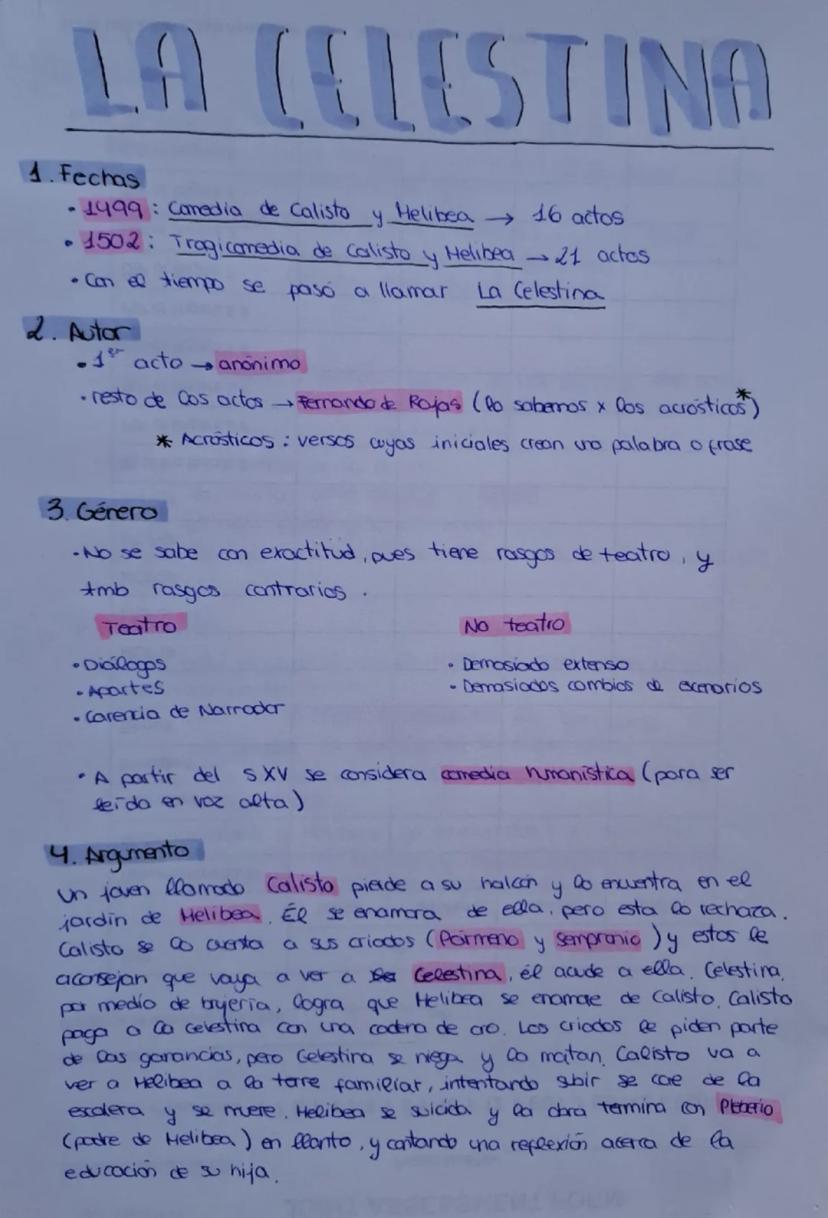 LA CELESTINA
1. Fechas
· 1499: Comedia de Calisto y Melibea → 16 actos
· 1502: Tragicomedia de Calisto y Melibea → 21 actos
· Con el tiempo se pasó a llamar La Celestina
2. Autor
· 1er acto → anónimo
· resto de los actos → Fernando de Rojas (lo sabemos x los acrósticos*)
* Acrósticos: versos cuyas iniciales crean una palabra o frase
3. Género
· No se sabe con exactitud, pues tiene rasgos de teatro, y
tmb rasgos contrarios.
Teatro No teatro
· Diálogos · Demasiado extenso
· Apartes · Demasiados cambios de escenarios
· Carencia de Narrador
· A partir del s XV se considera comedia humanística (para ser
leída en voz alta)
4. Argumento
Un joven llamado Calisto pierde a su halcón y lo encuentra en el
jardín de Melibea. Él se enamora de ella, pero esta lo rechaza.
Calisto se lo cuenta a sus criados (Pármeno y Sempronio) y estos le
aconsejan que vaya a ver a Celestina, él acude a ella. Celestina,
por medio de brujería, logra que Melibea se enamore de Calisto. Calisto
paga a la celestina con una cadena de oro. Los criados le piden parte
de las ganancias, pero Celestina se niega y la matan. Calisto va a
ver a Melibea a la torre familiar, intentando subir se cae de la
escalera y se muere. Melibea se suicida y la obra termina con Pleberio
(padre de Melibea) en llanto, y cantando una reflexión acerca de la
educación de su hija.